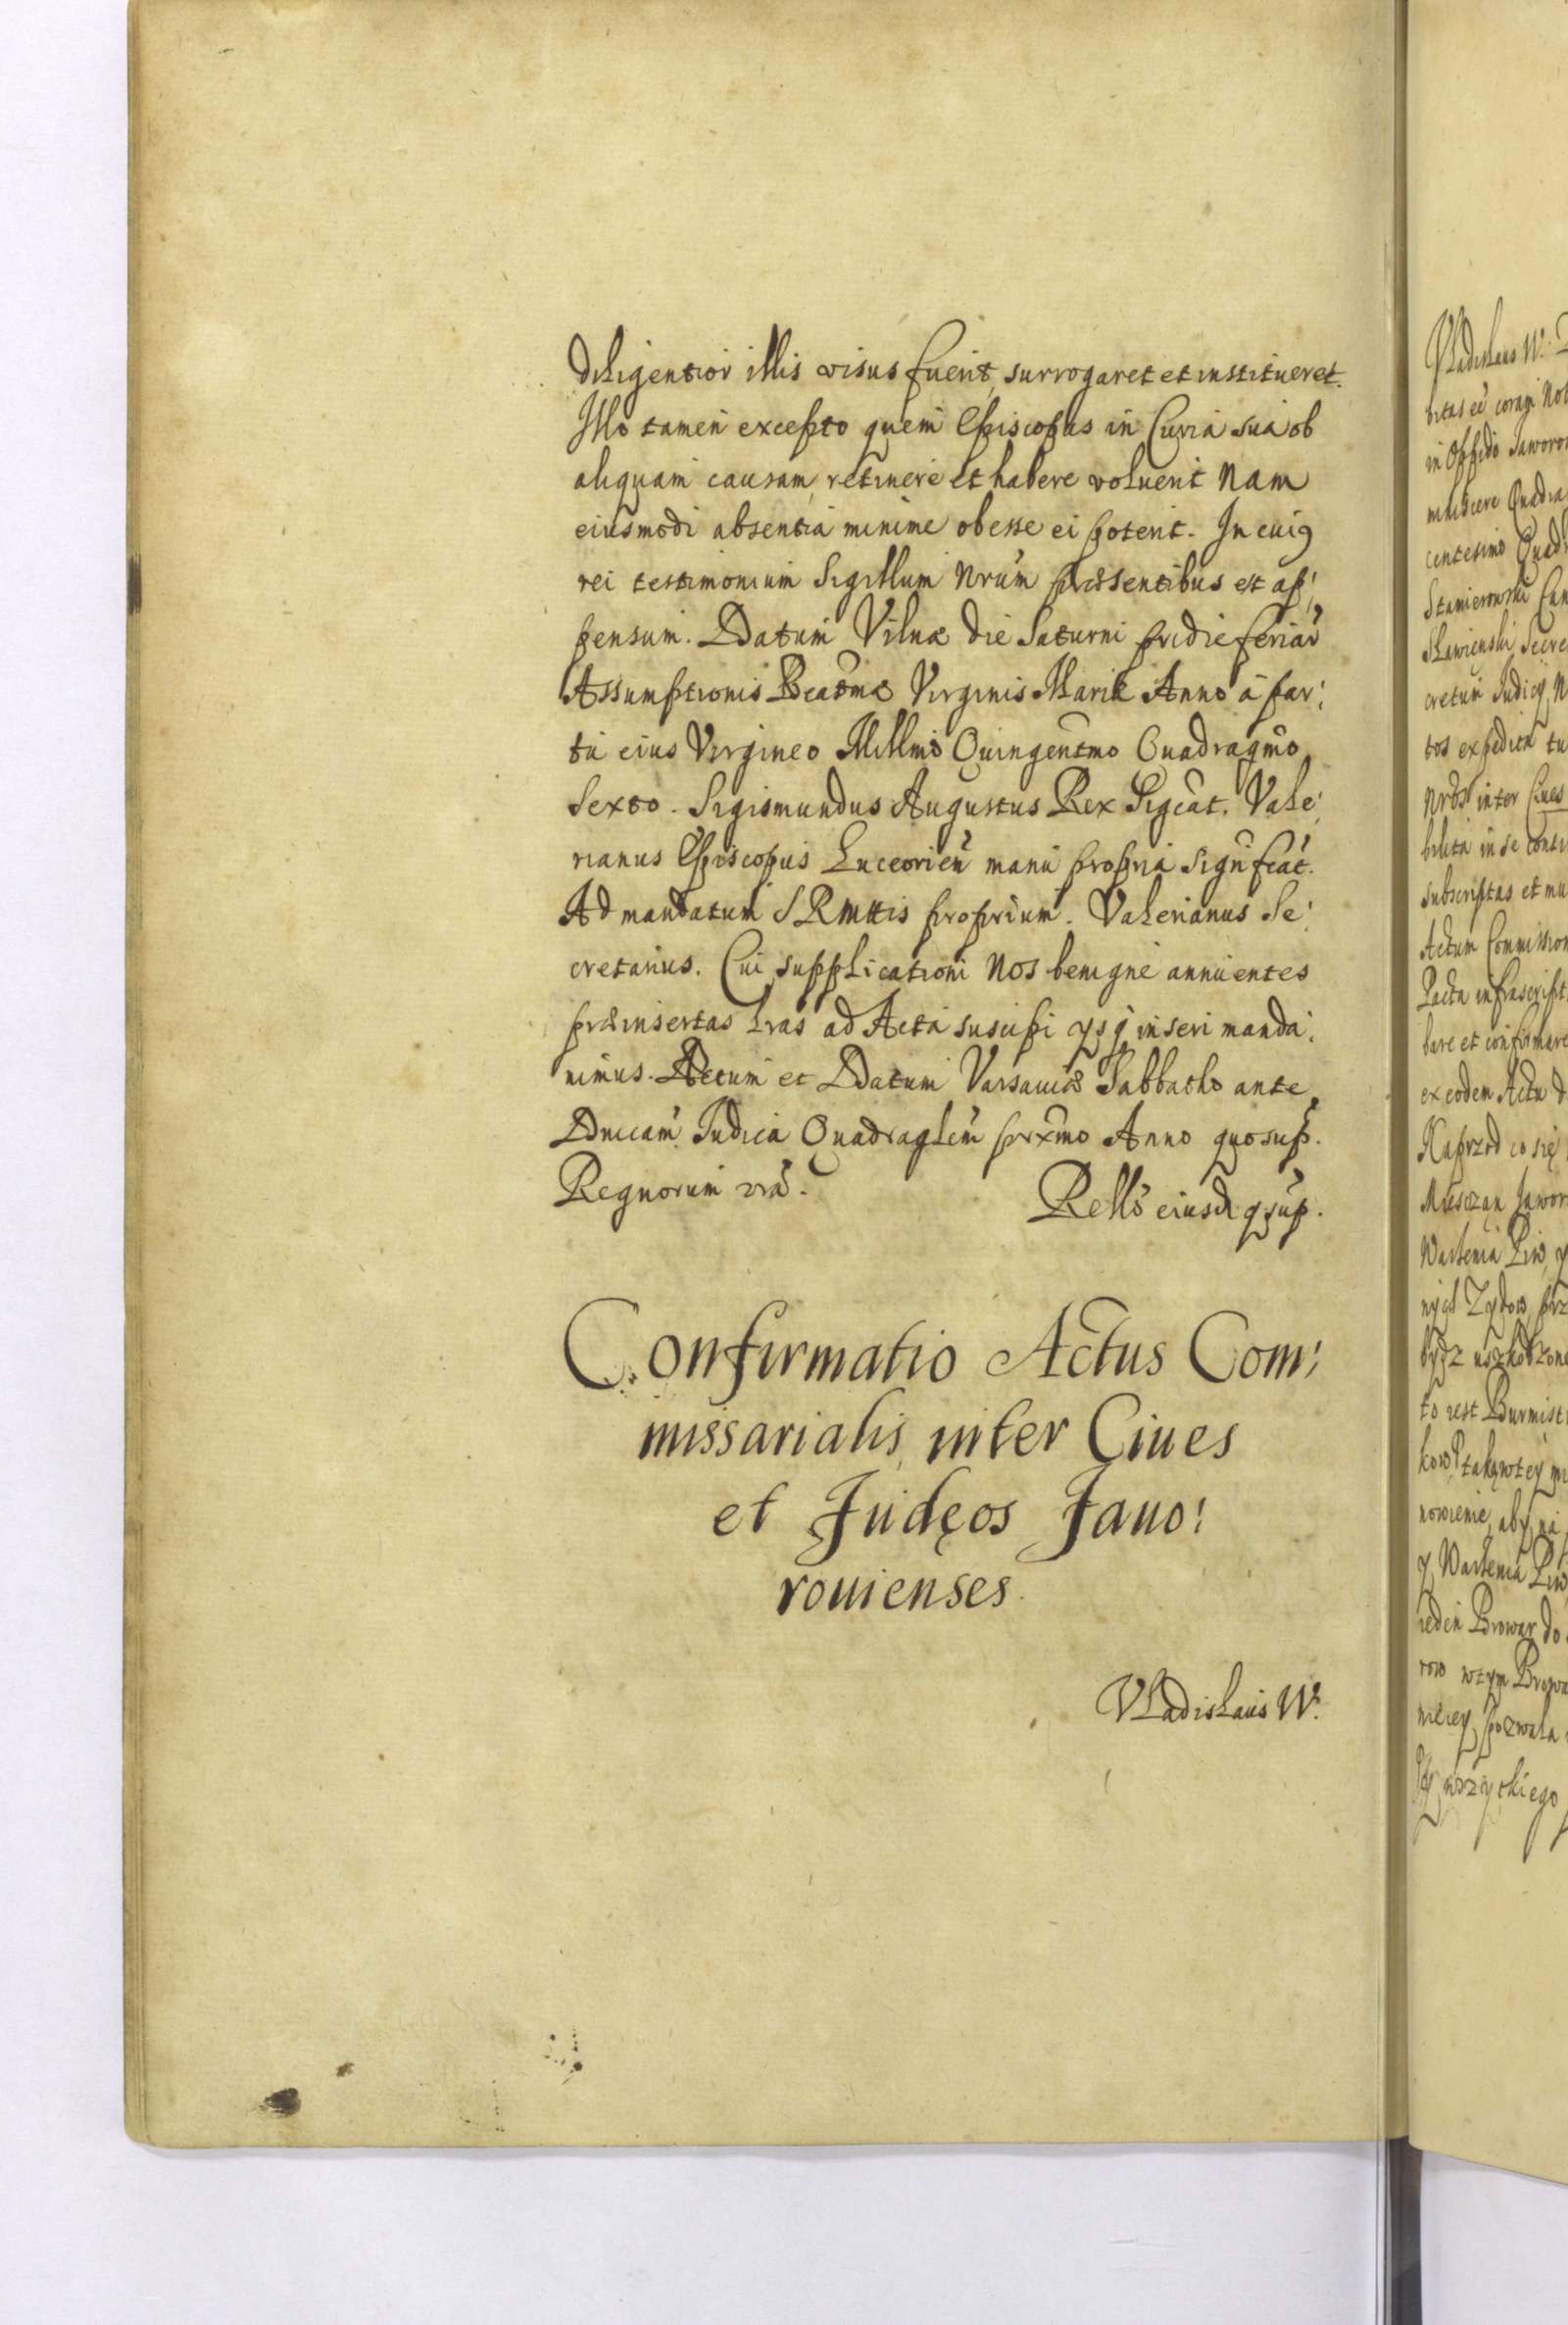 diligentior illis visus fuerit, surrogaret et institueret.
Illo tamen excepto quem Episcopus in Curia sua ob
aliquam causam, retinere et habere voluerit Nam
eiusmodi absentia minime obesse ei poterit. In cuig
rei testimonium Sigillum Nrum præsentibus est ap:
pensum. Datum Vilnæ die Saturni pridie feriar
Assumptionis Beatmæ Virginis Mariæ Anno à par:
tu eius Virgineo Millmo Quingentmo Quadragmo
Sexto. Sigismundus Augustus Rex Sigcat. Vale:
rianus Episcopus Luceorien manu propria Significat.
Ad mandatum SRMttis proprium. Valerianus Se:
cretarius. Cui supplicationi Nos benigne annuentes
præinsertas Lras ad Acta suscipi ysq inseri manda:
uimus. Actum et Datum Varsauiæ Sabbatho ante
Dnicam Iudica Quadraglem prxmo Anno quo sup.
Regnorum vrā.
Rello eiusd q sup.
Confirmatio Actus Com:
missarialis, inter Ciues
et Judęos Jauo:
rouienses
Vladislaus W.
Vladislaus W.
in Oppido Jaworo
centesimo Quad
cretum Iudicij N
tos expedita tu
Nros inter Ciues
subscriptas et mu
Actum Commission
Pacta infrascript
bare et confirmare
ex eodem Actu d
Naprzod co się
Miesczan Jawor
Warzenia Piw, y
nych Zydow prz
to iest Burmist
nowienie, aby na
y Warzenia Piw
ieden Browar do
row wtym Browa
wszytkiego